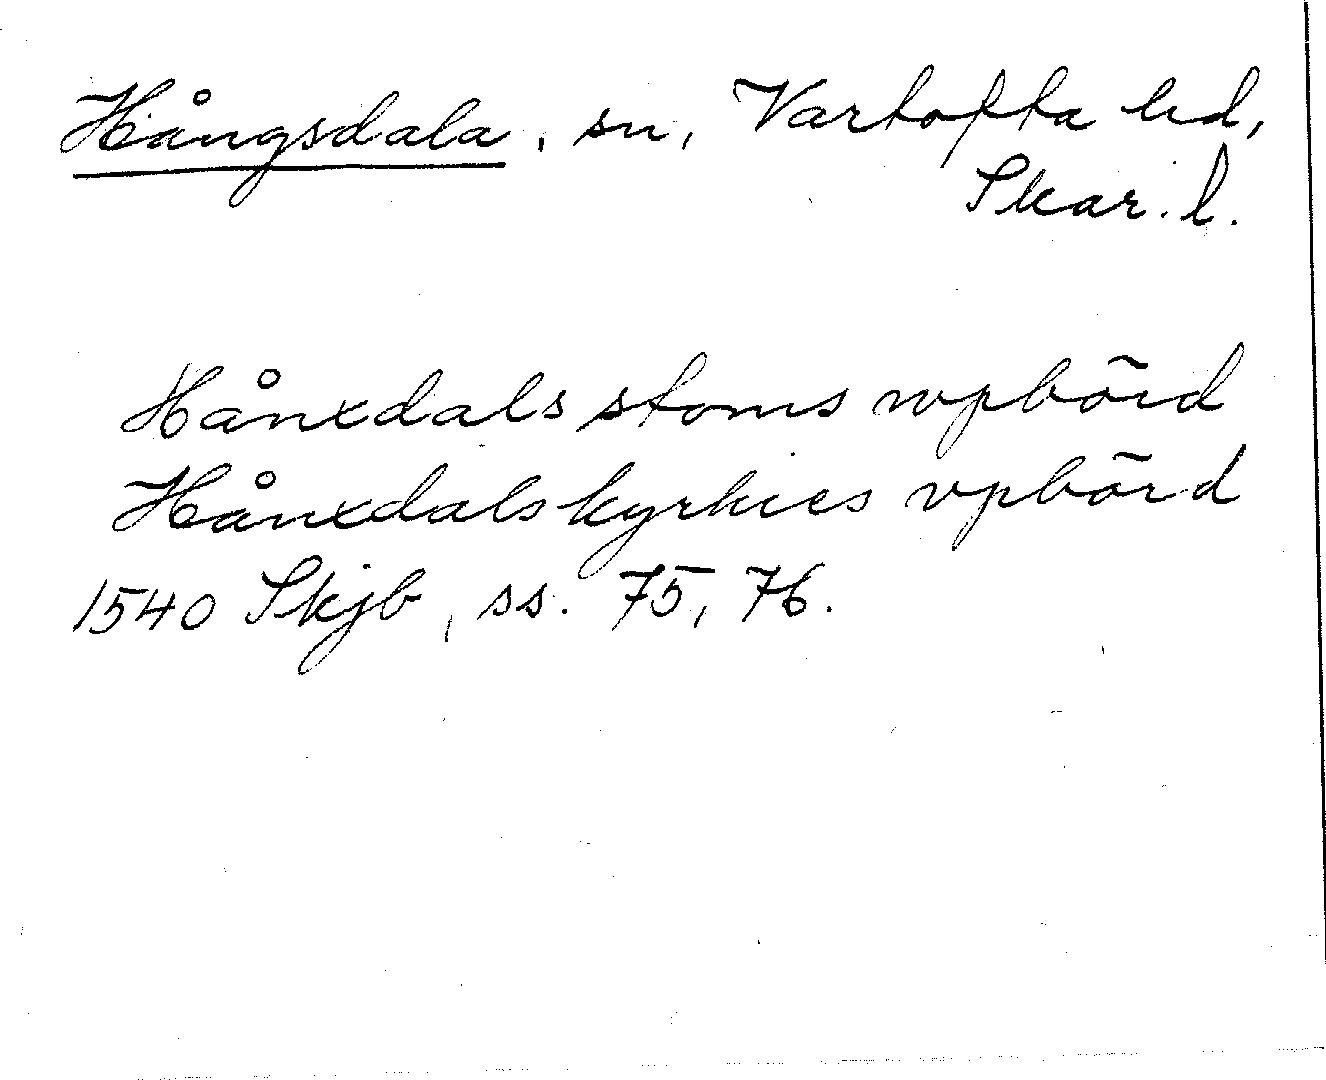 Hångsdala, sn, Vartofta hd,
Skar. l.
Hånxdals stoms wpbörd
Hånxdals kyrkies vpbörd
1540 Skjb, ss. 75, 76.